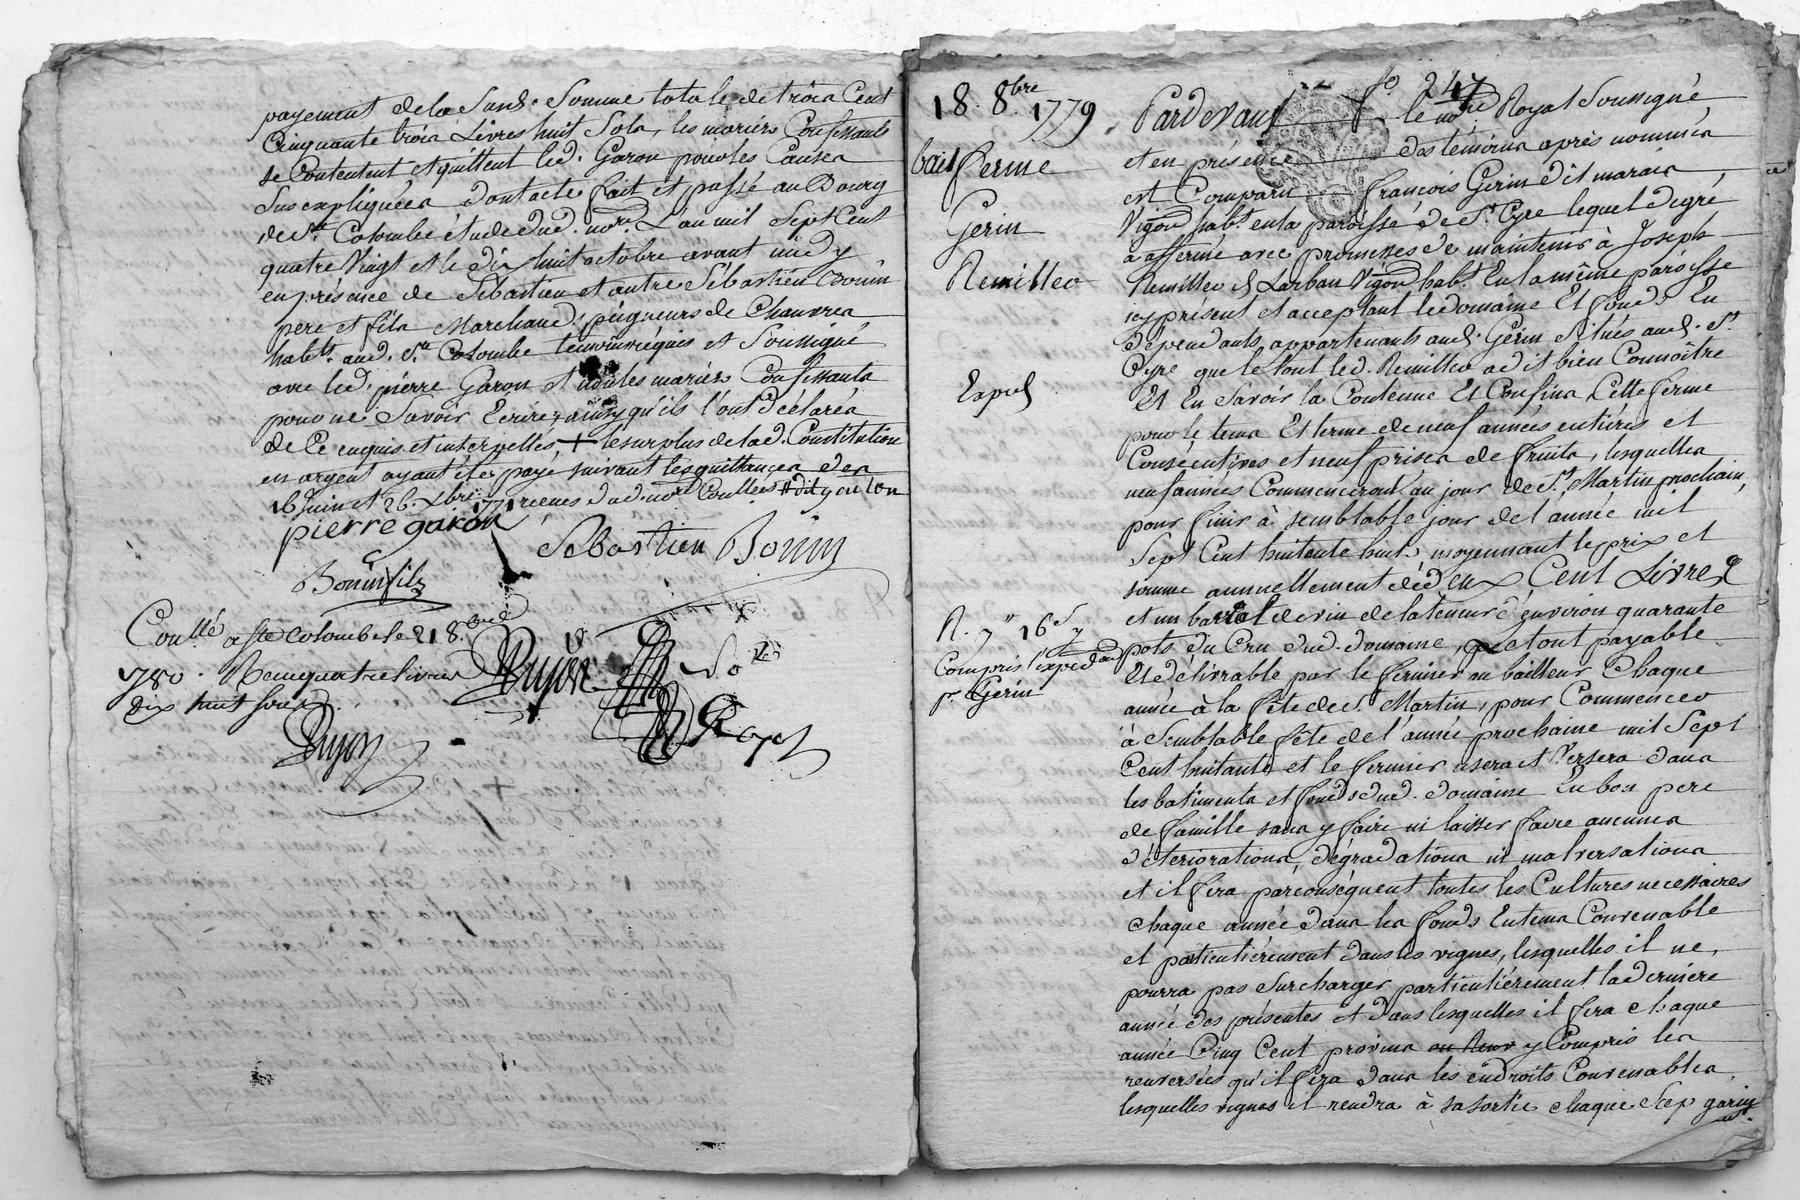 payement de la Susd. Somme totale de trois Cent
Cinquante trois Livres huit Sols, les mariés Confessants
se Contentent et quittent led. Garon pour les Causes
Sus expliquées dont acte fait et passé au Bourg
de Ste Colombe étude dud. nore. L'an mil Sept Cent
quatre Vingt et le dix huit octobre avant midy
en présence de Sébastien et autre Sébastien Bonin
pere et fils Marchands peigneurs de Chanvres
habts. aud. Ste Colombe temoins requis et Soussignés
avec led. pierre Garon et non les mariés Confessants
pour ne Savoir Ecrire, ainsy qu'ils l'ont déclarés
de Ce enquis et interpellés, + le surplus de lad. Constitution
en argent ayant été payé suivant les quittances des
16 Juin et 26. xbre 1771 reçues dud. nore Coullées
pierre garon
Sebastien Bonin
Bonin fils
Coullé a Ste Colombe le 21 8.bre
780. Reçu quatre livres
dix huit sous
Dujon
Dujon
247
18. 8bre 1779
bail ferme
Gerin
Remilleo
Exped
R. 7" 16s
Compris l'exped on
pr. Gerin
Pardevant le nore. Royal Soussigné
et en présence des témoins après nommés
est Comparu françois Gerin dit marais,
Vigon habt. en la paroisse de St. Cyre lequel degré
a affermé avec promesses de maintenir à Joseph
Remilleo d. Larban Vigon habt. En la même paroisse
icy présent et acceptant le domaine Et fonds En
dépendants appartenants aud. Gerin situés aud. St.
Cyre que le tout led. Remilleo a dit bien Connoître
Et En Savoir la Contenue Et Confins, Cette ferme
pour le tems Et terme de neuf années entières et
Consécutives et neuf prises de fruits, lesquelles
neuf années Commenceront au jour de St. Martin prochain,
pour finir à semblable jour de l'année mil
Sept Cent huitante huit, moyennant le prix et
somme annuellement de deux Cent Livres
et un baral de vin de la teneur d'environ quarante
pots du Cru dud. domaine, le tout payable
Et délivrable par le fermier au bailleur Chaque
année à la fête de St. Martin, pour Commencer
à Semblable fête de l'année prochaine mil Sept
Cent huitante et le fermier usera et Versera dans
les batiments et fonds dud. domaine En bon pere
de famille sans y faire ni laisser faire aucunes
déteriorations, dégradations ni malversations
et il fera parconséquent toutes les Cultures necessaires
chaque année dans les fonds En tems Convenable
et particulièrement dans les vignes, lesquelles il ne
pourra pas Surcharger particulièrement la derniere
année des présentes et dans lesquelles il fera chaque
année Cinq Cent provins y Compris les
renversées qu'il fera dans les endroits Convenables
lesquelles vignes il rendra à sa sortie chaque Sep garin